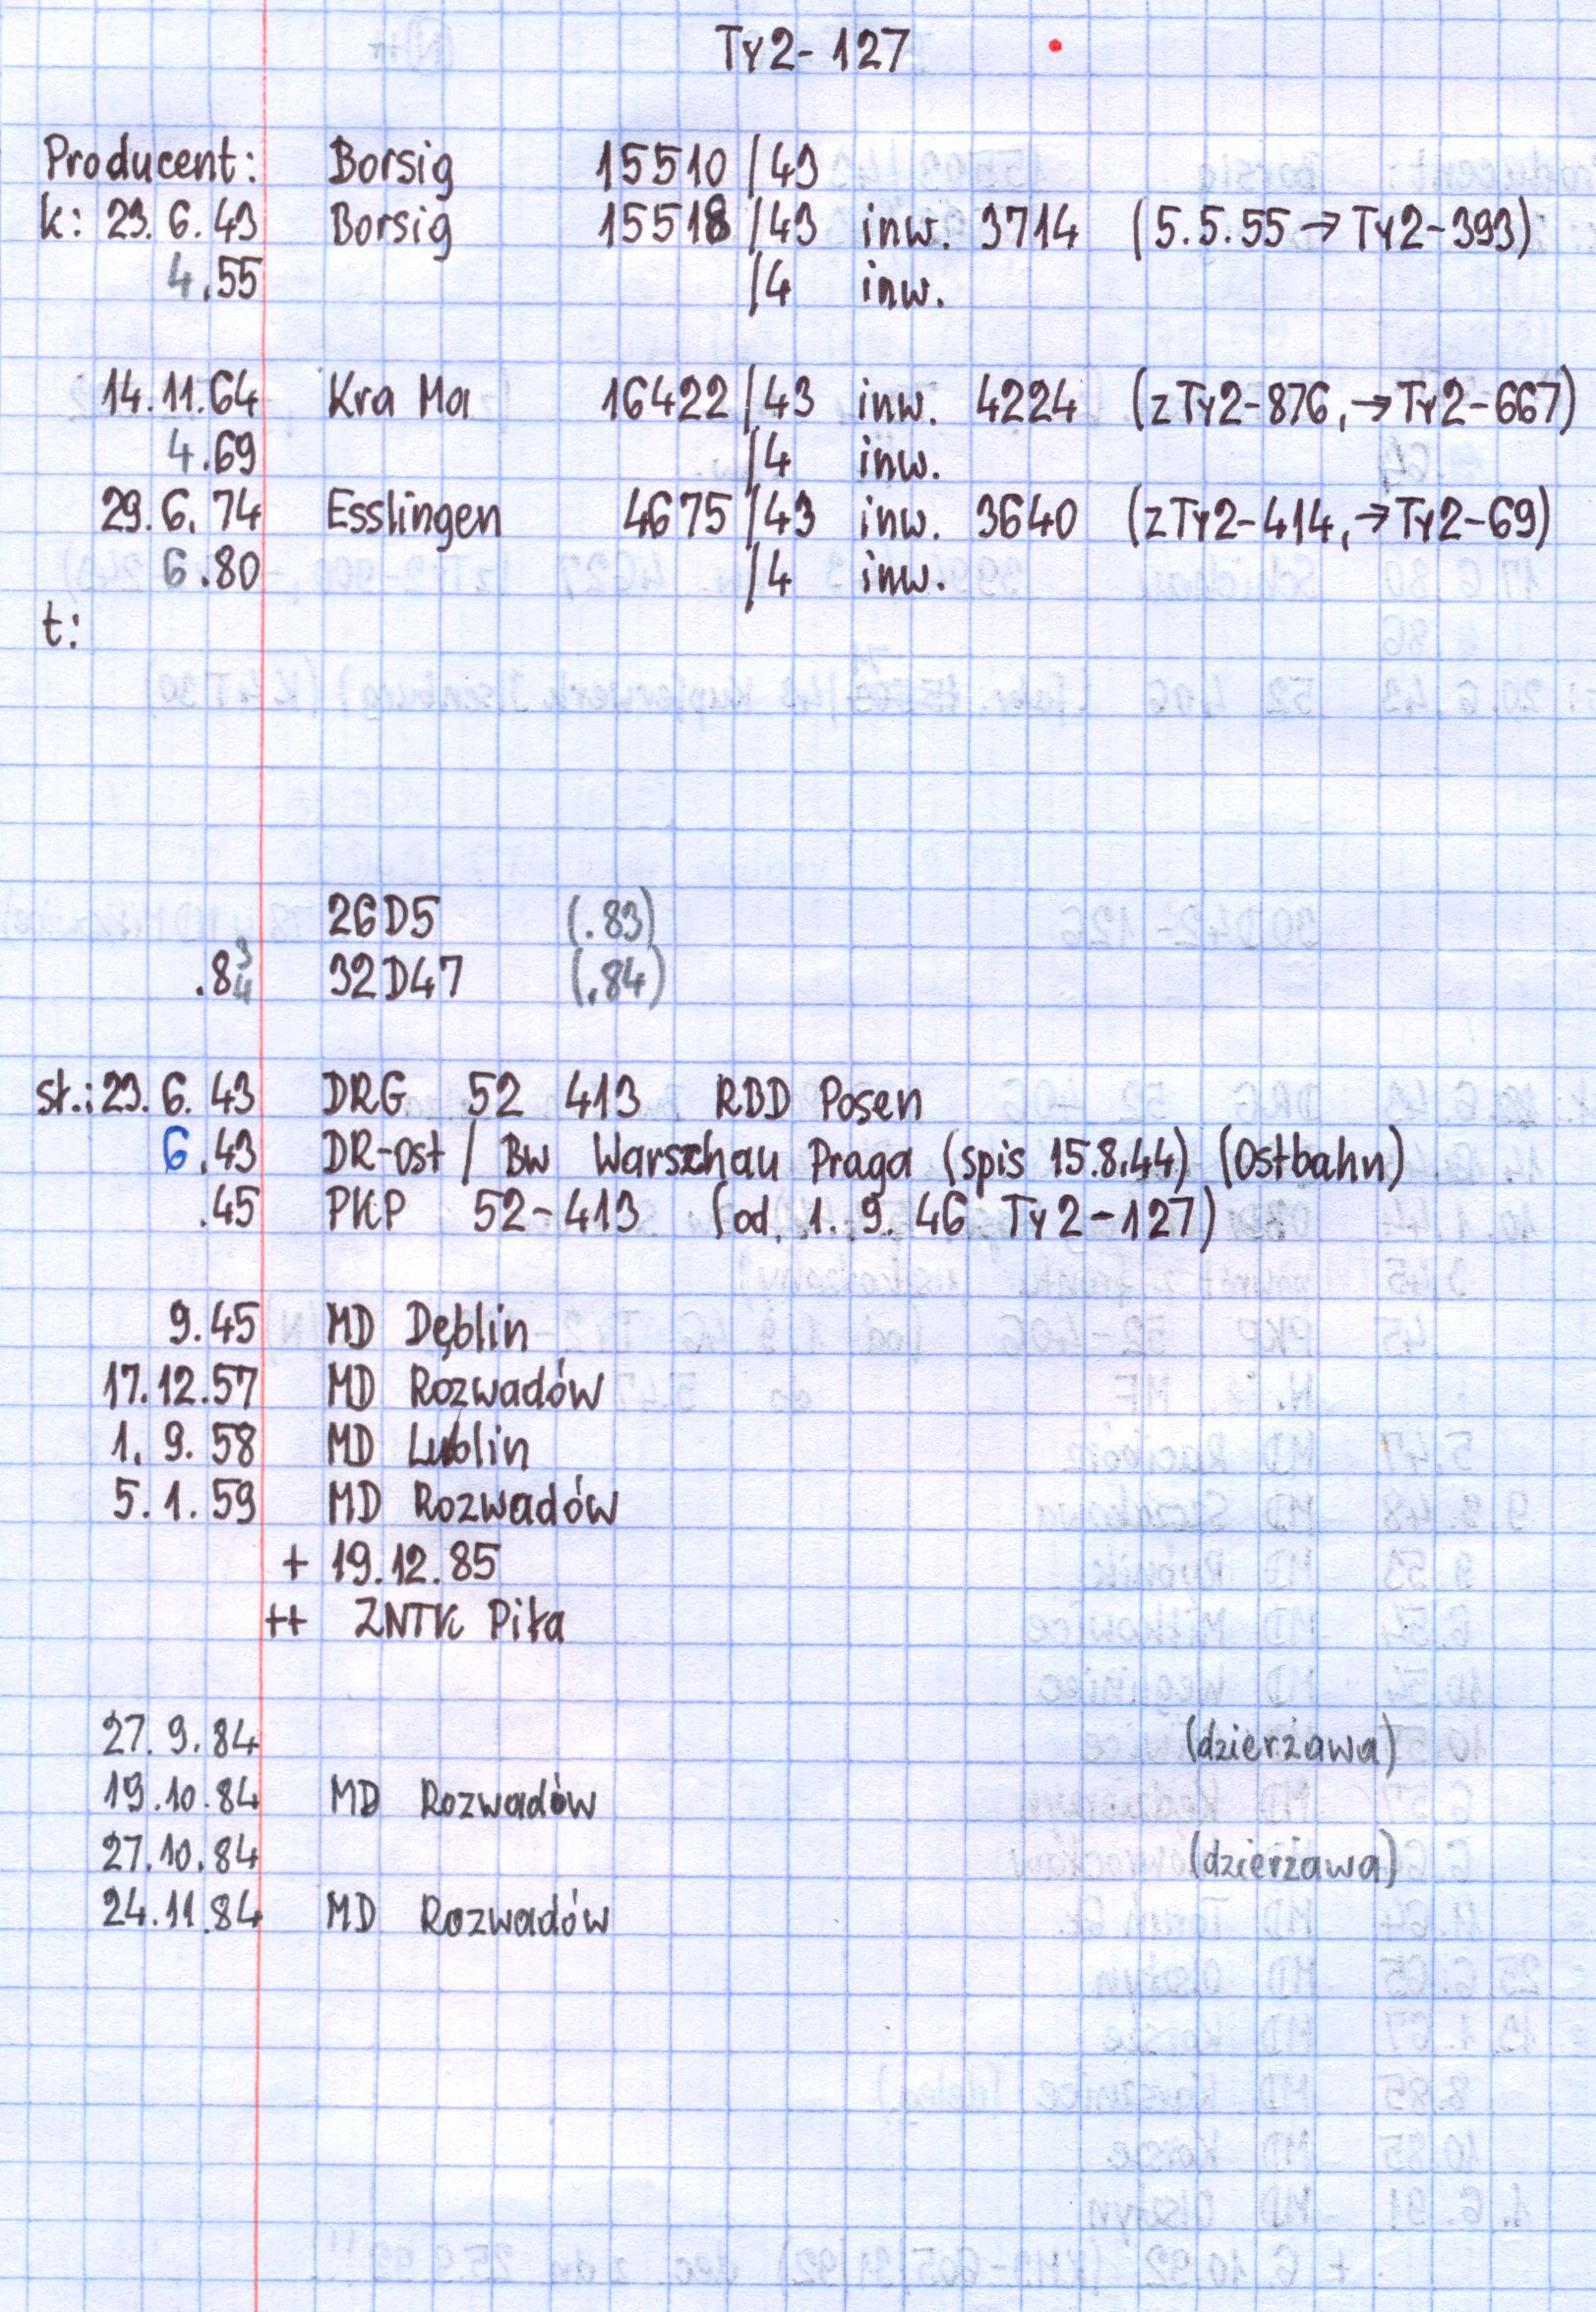 Ty2-127
Producent: Borsig 15510/43
k: 23.6.43 Borsig 15518/43 inw. 3714 (5.5.55 → Ty2-393)
4.55 /4 inw.
14.11.64 Kra Ma 16422/43 inw. 4224 (z Ty2-876, → Ty2-667)
4.69 /4 inw.
29.6.74 Esslingen 4675/43 inw. 3640 (z Ty2-414, → Ty2-69)
6.80 /4 inw.
t:
26D5 (.83)
.8 3/4 32D47 (.84)
st.: 23.6.43 DRG 52 413 RBD Posen
6.43 DR-Ost / Bw Warschau Praga (spis 15.8.44) (Ostbahn)
.45 PKP 52-413 (od 1.9.46 Ty2-127)
9.45 MD Dęblin
17.12.57 MD Rozwadów
1.9.58 MD Lublin
5.1.59 MD Rozwadów
+ 19.12.85
++ ZNTK Piła
27.9.84 (dzierżawa)
19.10.84 MD Rozwadów
27.10.84 (dzierżawa)
24.11.84 MD Rozwadów